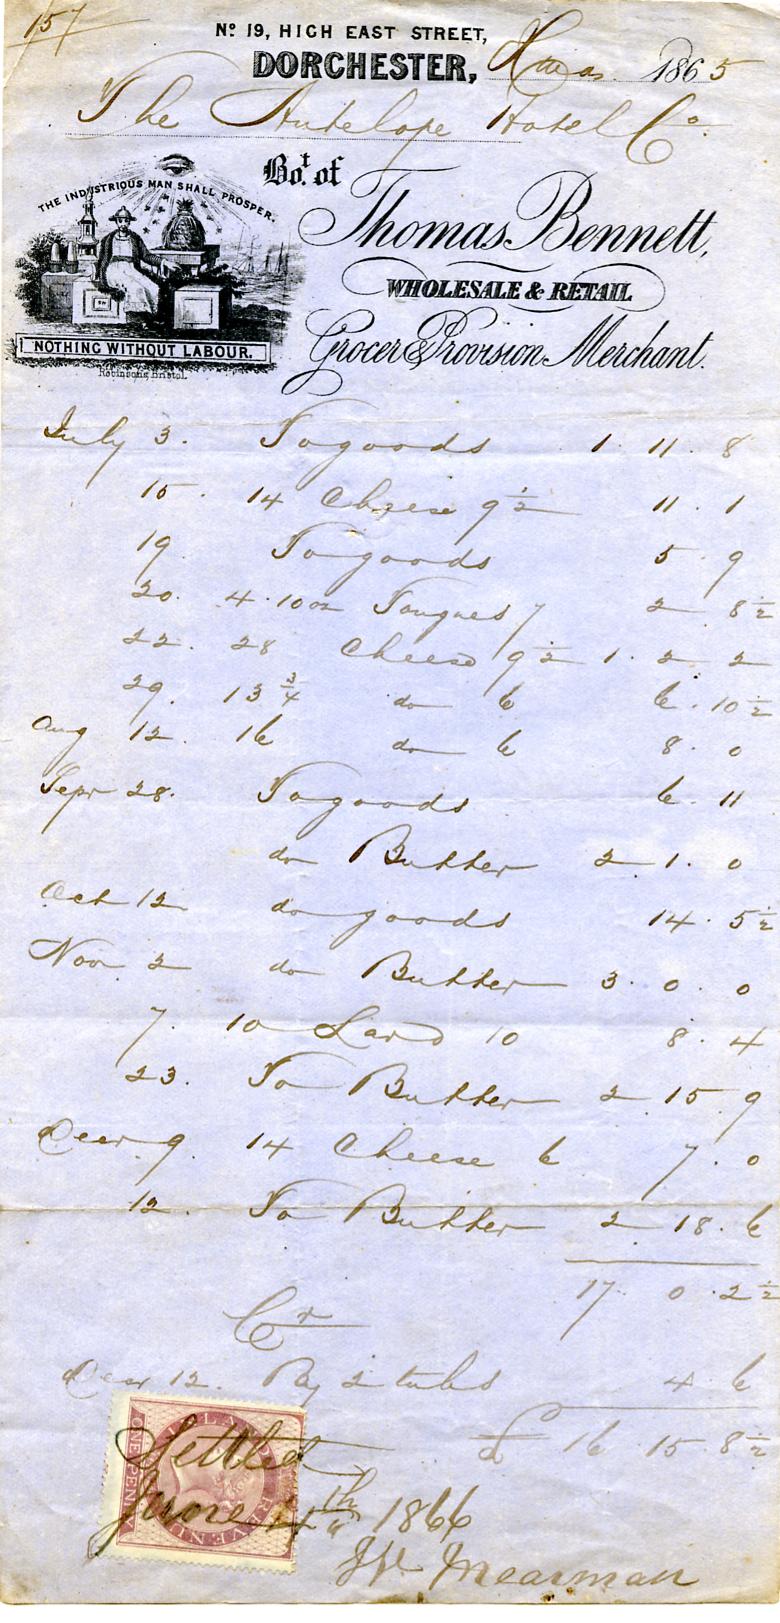 157
No 19, HIGH EAST STREET,
DORCHESTER, Xmas 1865
The Antelope Hotel Co.
Bot. of
THE INDUSTRIOUS MAN SHALL PROSPER.
Thomas Bennett,
WHOLESALE & RETAIL
Grocer & Provision Merchant.
NOTHING WITHOUT LABOUR.
Robinsons, Bristol.
July 3. To goods 1. 11. 8
15. 14 Cheese 9 1/2 11. 1
19. To goods 5. 9
20. 4.10oz Tongues 7 2. 8 1/2
22. 28 Cheese 9 1/2 1. 2. 2
29. 13 3/4 do 6 6. 10 1/2
Aug 12. 16 do 6 8. 0
Sepr 28. To goods 6. 11
do Butter 2. 1. 0
Oct 12 do goods 14. 5 1/2
Nov 2 do Butter 3. 0. 0
7. 10 Lard 10 8. 4
23. To Butter 2 15 9
Decr 9. 14 Cheese 6 7. 0
12. To Butter 2 18. 6
17. 0. 2 1/2
Cr
Decr 12. By 2 tubs 4. 6
£ 16 15. 8 1/2
INLAND REVENUE
ONE PENNY
Settled
June 14th 1866
Mearman